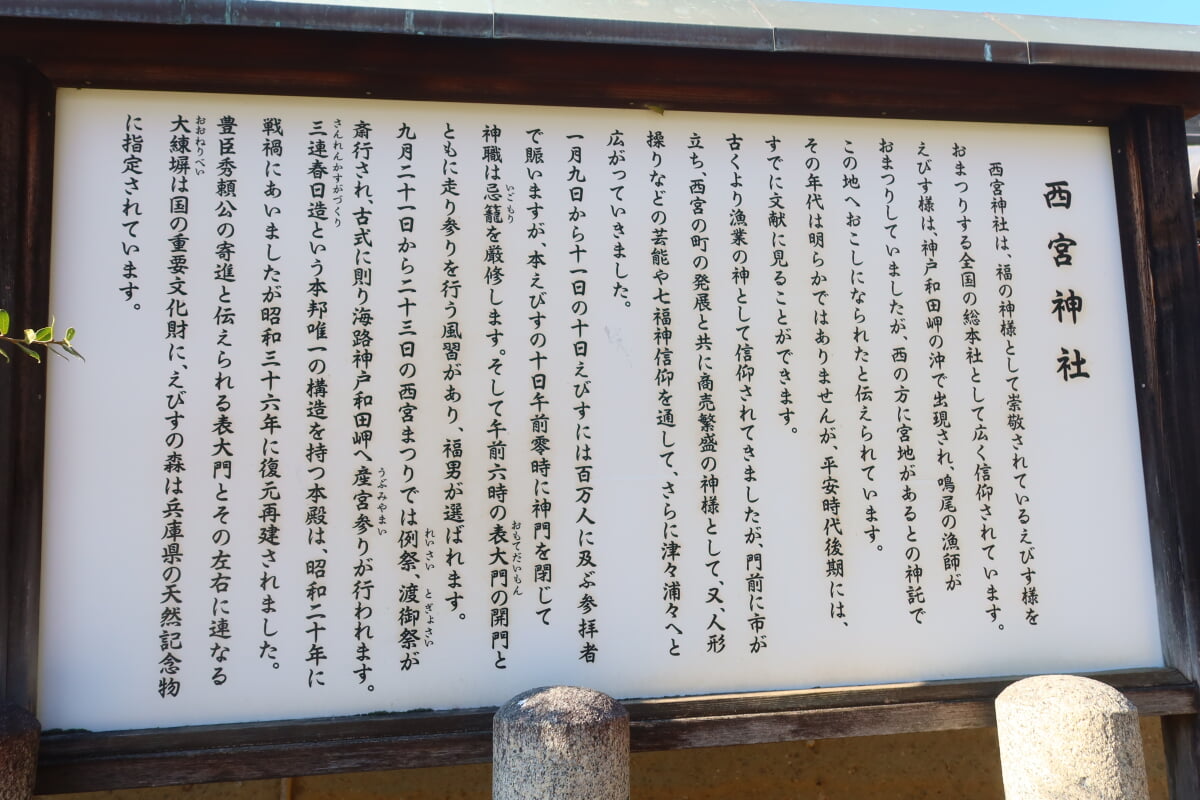 西宮神社
西宮神社は、福の神様として崇敬されているえびす様を
おまつりする全国の総本社として広く信仰されています。
えびす様は、神戸和田岬の沖で出現され、鳴尾の漁師が
おまつりしていましたが、西の方に宮地があるとの神託で
この地へおこしになられたと伝えられています。
その年代は明らかではありませんが、平安時代後期には、
すでに文献に見ることができます。
古くより漁業の神として信仰されてきましたが、門前に市が
立ち、西宮の町の発展と共に商売繁盛の神様として、又、人形
操りなどの芸能や七福神信仰を通して、さらに津々浦々へと
広がっていきました。
一月九日から十一日の十日えびすには百万人に及ぶ参拝者
で賑いますが、本えびすの十日午前零時に神門を閉じて
神職は忌籠を厳修します。そして午前六時の表大門の開門と
いごもり
おもてだいもん
ともに走り参りを行う風習があり、福男が選ばれます。
九月二十一日から二十三日の西宮まつりでは例祭、渡御祭が
れいさい
とぎょさい
斎行され、古式に則り海路神戸和田岬へ産宮参りが行われます。
うぶみやまい
三連春日造という本邦唯一の構造を持つ本殿は、昭和二十年に
さんれんかすがづくり
戦禍にあいましたが昭和三十六年に復元再建されました。
豊臣秀頼公の寄進と伝えられる表大門とその左右に連なる
大練塀は国の重要文化財に、えびすの森は兵庫県の天然記念物
おおねりべい
に指定されています。